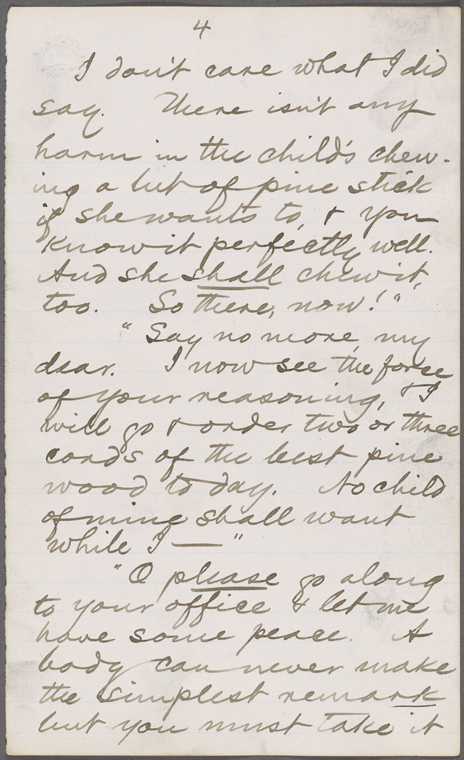 4
I don't care what I did
say. There isn't any
harm in the child's chew-
ing a bit of pine stick
if she wants to, & you
know it perfectly well.
And she shall chew it,
too. So there, now!"
"Say no more, my
dear. I now see the force
of your reasoning, & I
will go & order two or three
cords of the best pine
wood to-day. No child
of mine shall want
while I —"
"O please go along
to your office & let me
have some peace. A
body can never make
the simplest remark
but you must take it